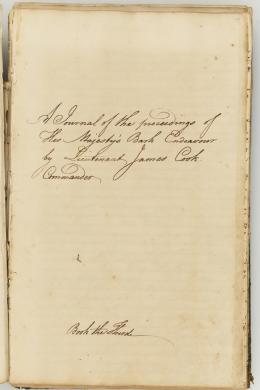 A Journal of the proceedings of
His Majesty's Bark Endeavour
by Lieutenant James Cook
Commander
Book the Third